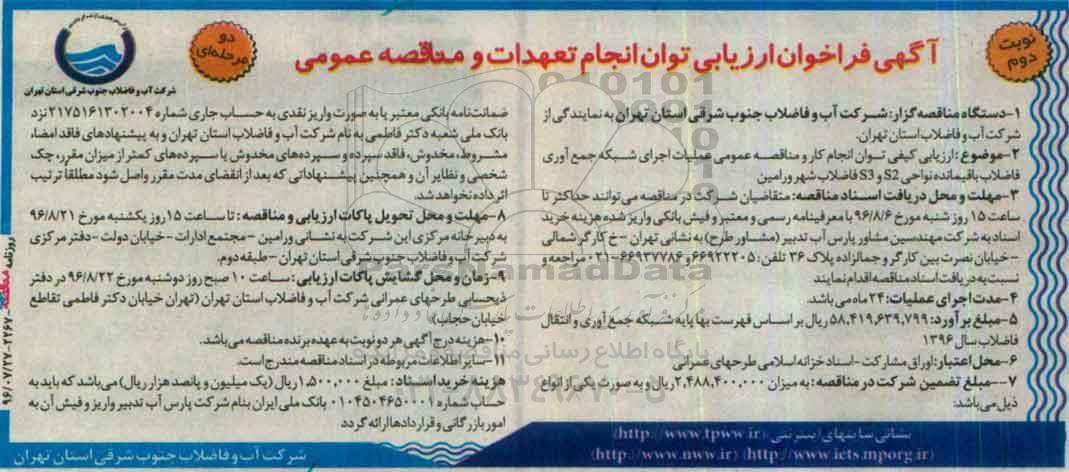 نوبت دوم
آگهی فراخوان ارزیابی توان انجام تعهدات و مناقصه عمومی
دو مرحله‌ای
شرکت آب و فاضلاب جنوب شرقی استان تهران
۱-دستگاه مناقصه گزار: شرکت آب و فاضلاب جنوب شرقی استان تهران به نمایندگی از
شرکت آب و فاضلاب استان تهران.
۲-موضوع: ارزیابی کیفی توان انجام کار و مناقصه عمومی عملیات اجرای شبکه جمع آوری
فاضلاب باقیمانده نواحی S2 و S3 فاضلاب شهر ورامین
۳-مهلت و محل دریافت اسناد مناقصه: متقاضیان شرکت در مناقصه می توانند حداکثر تا
ساعت ۱۵ روز شنبه مورخ ۹۶/۸/۶ با معرفینامه رسمی و معتبر و فیش بانکی واریز شده هزینه خرید
اسناد به شرکت مهندسین مشاور پارس آب تدبیر (مشاور طرح) به نشانی تهران -خ کارگر شمالی
-خیابان نصرت بین کارگر و جمالزاده پلاک ۳۶ تلفن: ۶۶۹۲۲۲۰۵ و ۶۶۹۳۷۷۸۶-۰۲۱ مراجعه و
نسبت به دریافت اسناد مناقصه اقدام نمایند
۴-مدت اجرای عملیات: ۲۴ ماه می باشد.
۵-مبلغ برآورد: ۵۸,۴۱۹,۶۳۹,۷۹۹ ریال بر اساس فهرست بها پایه شبکه جمع آوری و انتقال
فاضلاب سال ۱۳۹۶
۶-محل اعتبار: اوراق مشارکت -اسناد خزانه اسلامی طرحهای عمرانی
۷--مبلغ تضمین شرکت در مناقصه: به میزان ۲,۴۸۸,۴۰۰,۰۰۰ ریال و به صورت یکی از انواع
ذیل می باشد:
ضمانت نامه بانکی معتبر یا به صورت واریز نقدی به حساب جاری شماره ۲۱۷۵۱۶۱۳۰۲۰۰۴ نزد
بانک ملی شعبه دکتر فاطمی به نام شرکت آب و فاضلاب استان تهران و به پیشنهادهای فاقد امضاء،
مشروط، مخدوش، فاقد سپرده و سپرده‌های مخدوش یا سپرده‌های کمتر از میزان مقرر، چک
شخصی و نظایر آن و همچنین پیشنهاداتی که بعد از انقضای مدت مقرر واصل شود مطلقا ترتیب
اثر داده نخواهد شد.
۸-مهلت و محل تحویل پاکات ارزیابی و مناقصه: تا ساعت ۱۵ روز یکشنبه مورخ ۹۶/۸/۲۱
به دبیرخانه مرکزی این شرکت به نشانی ورامین -مجتمع ادارات -خیابان دولت -دفتر مرکزی
شرکت آب و فاضلاب جنوب شرقی استان تهران -طبقه دوم.
۹-زمان و محل گشایش پاکات ارزیابی: ساعت ۱۰ صبح روز دوشنبه مورخ ۹۶/۸/۲۲ در دفتر
ذیحسابی طرحهای عمرانی شرکت آب و فاضلاب استان تهران (تهران خیابان دکتر فاطمی تقاطع
خیابان حجاب)
۱۰-هزینه درج آگهی هر دو نوبت به عهده برنده مناقصه می باشد.
۱۱-سایر اطلاعات مربوطه در اسناد مناقصه مندرج است.
هزینه خرید اسناد: مبلغ ۱,۵۰۰,۰۰۰ ریال (یک میلیون و پانصد هزار ریال) می باشد که باید به
حساب شماره ۰۱۰۴۵۰۴۶۵۰۰۰۱ بانک ملی ایران بنام شرکت پارس آب تدبیر واریز و فیش آن به
امور بازرگانی و قراردادها ارائه گردد
نشانی سایتهای اینترنتی: (http://www.tpww.ir)
(http://www.nww.ir) (http://www.iets.mporg.ir)
شرکت آب و فاضلاب جنوب شرقی استان تهران
روزنامه مناقصه ۲۲۶۷-۹۶/۰۷/۲۷
پایگاه اطلاع رسانی